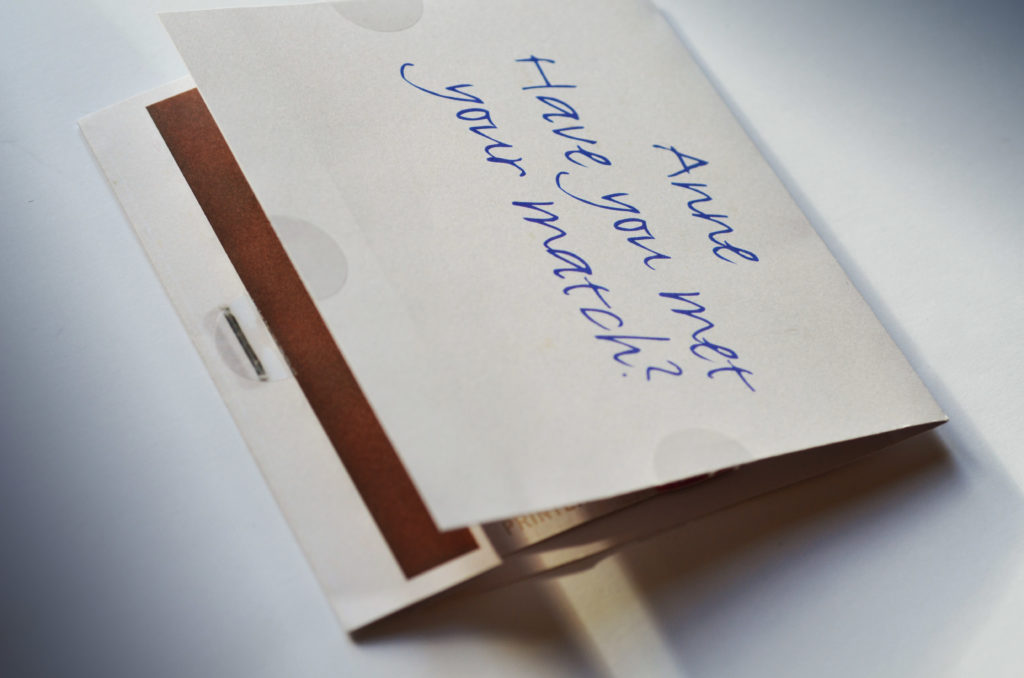 Anne
Have you met
your match?
PRINTE